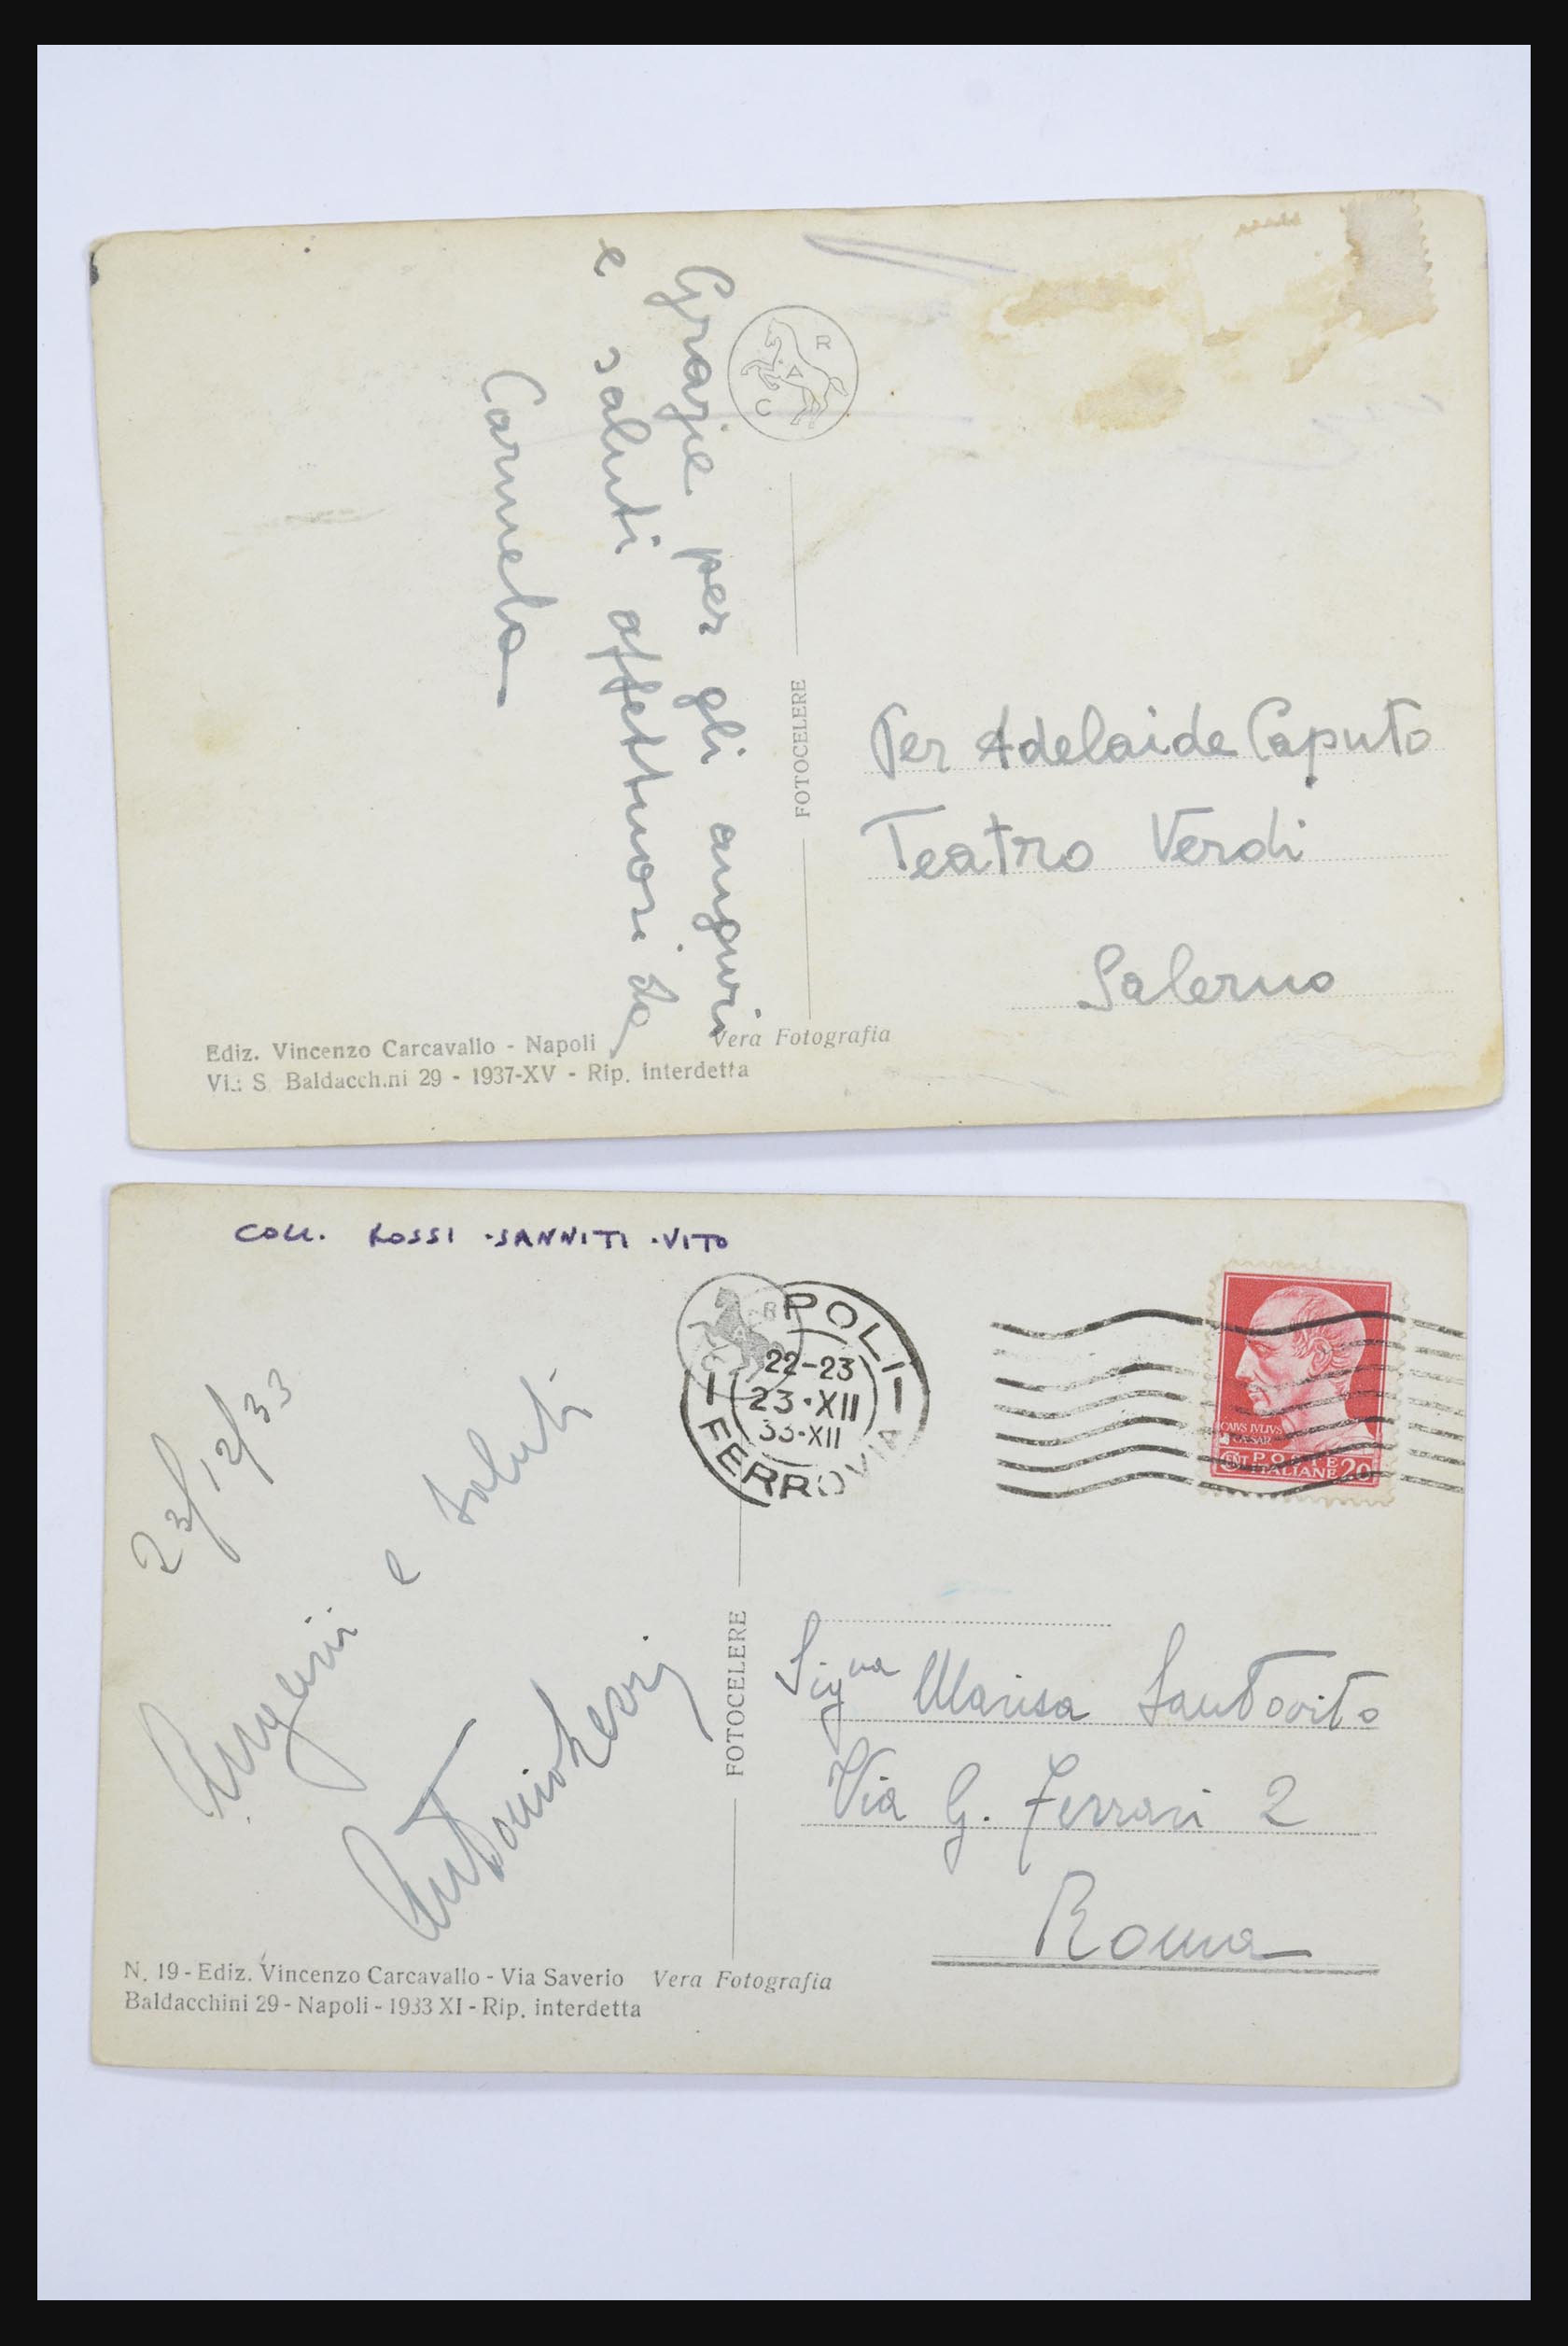 Grazie per gli auguri
e saluti affettuosi da
Carmelo
R
A
C
FOTOCELERE
Per Adelaide Caputo
Teatro Verdi
Salerno
Ediz. Vincenzo Carcavallo - Napoli
Vera Fotografia
Via S. Baldacchini 29 - 1937-XV - Rip. interdetta
COLL. ROSSI - SANNITI - VITO
23/12/33
Auguri e saluti
R
POLI
22-23
23·XII
33-XII
FERROVIA
CAIVS IVLIVS
CAESAR
CENT POSTE
ITALIANE 20
FOTOCELERE
Sig.na Marisa Santovito
Via G. Ferrari 2
Roma
N. 19 - Ediz. Vincenzo Carcavallo - Via Saverio
Vera Fotografia
Baldacchini 29 - Napoli - 1933 XI - Rip. interdetta